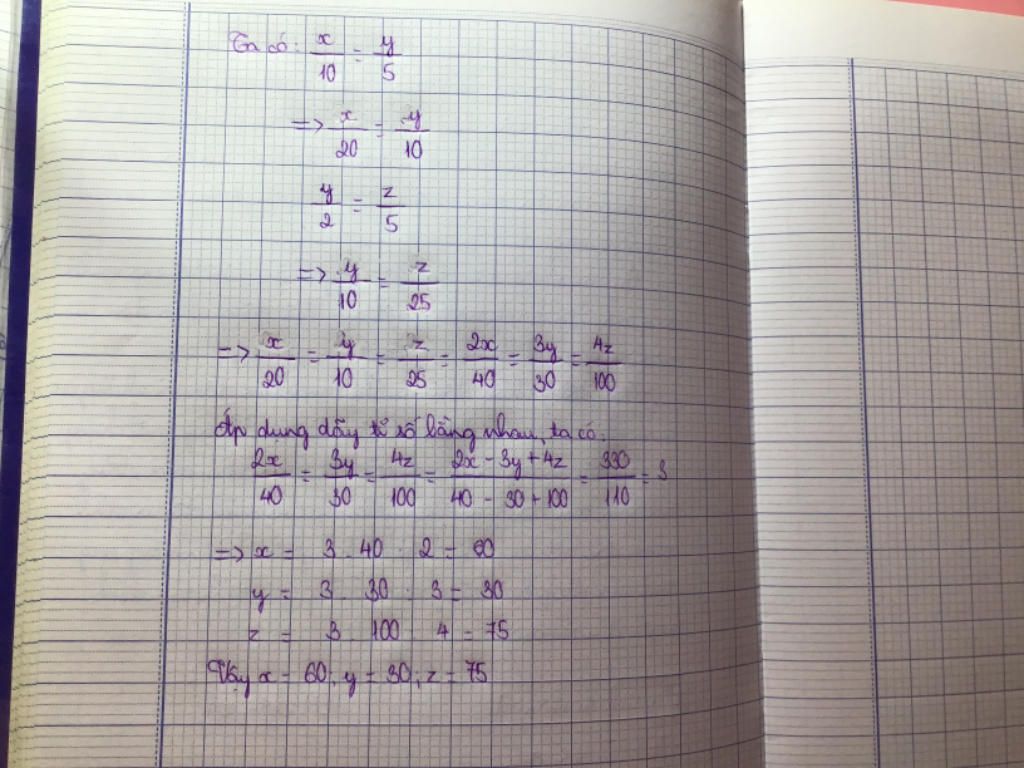 Ta có: x/10 = y/5
=> x/20 = y/10
y/2 = z/5
=> y/10 = z/25
=> x/20 = y/10 = z/25 = 2x/40 = 3y/30 = 4z/100
Áp dụng dãy tỉ số bằng nhau, ta có:
2x/40 = 3y/30 = 4z/100 = 2x - 3y + 4z/40 - 30 + 100 = 330/110 = 3
=> x = 3 . 40 : 2 = 60
y = 3 . 30 : 3 = 30
z = 3 . 100 : 4 = 75
Vậy x = 60; y = 30; z = 75